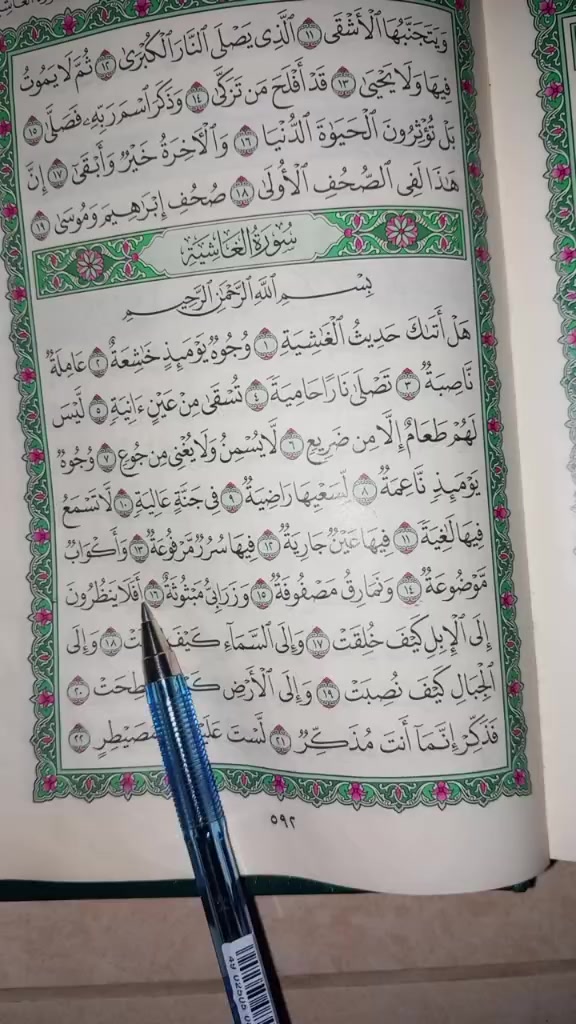 وَيَتَجَنَّبُهَا ٱلْأَشْقَى ١١ ٱلَّذِى يَصْلَى ٱلنَّارَ ٱلْكُبْرَىٰ ١٢ ثُمَّ لَا يَمُوتُ
فِيهَا وَلَا يَحْيَىٰ ١٣ قَدْ أَفْلَحَ مَن تَزَكَّىٰ ١٤ وَذَكَرَ ٱسْمَ رَبِّهِۦ فَصَلَّىٰ ١٥
بَلْ تُؤْثِرُونَ ٱلْحَيَوٰةَ ٱلدُّنْيَا ١٦ وَٱلْآخِرَةُ خَيْرٌ وَأَبْقَىٰٓ ١٧ إِنَّ
هَٰذَا لَفِى ٱلصُّحُفِ ٱلْأُولَىٰ ١٨ صُحُفِ إِبْرَٰهِيمَ وَمُوسَىٰ ١٩
سُورَةُ الغَاشِيَةِ
بِسْمِ ٱللَّهِ ٱلرَّحْمَٰنِ ٱلرَّحِيمِ
هَلْ أَتَىٰكَ حَدِيثُ ٱلْغَٰشِيَةِ ١ وُجُوهٌ يَوْمَئِذٍ خَٰشِعَةٌ ٢ عَامِلَةٌ
نَّاصِبَةٌ ٣ تَصْلَىٰ نَارًا حَامِيَةً ٤ تُسْقَىٰ مِنْ عَيْنٍ ءَانِيَةٍ ٥ لَّيْسَ
لَهُمْ طَعَامٌ إِلَّا مِن ضَرِيعٍ ٦ لَّا يُسْمِنُ وَلَا يُغْنِى مِن جُوعٍ ٧ وُجُوهٌ
يَوْمَئِذٍ نَّاعِمَةٌ ٨ لِّسَعْيِهَا رَاضِيَةٌ ٩ فِى جَنَّةٍ عَالِيَةٍ ١٠ لَّا تَسْمَعُ
فِيهَا لَٰغِيَةً ١١ فِيهَا عَيْنٌ جَارِيَةٌ ١٢ فِيهَا سُرُرٌ مَّرْفُوعَةٌ ١٣ وَأَكْوَابٌ
مَّوْضُوعَةٌ ١٤ وَنَمَارِقُ مَصْفُوفَةٌ ١٥ وَزَرَابِىُّ مَبْثُوثَةٌ ١٦ أَفَلَا يَنظُرُونَ
إِلَى ٱلْإِبِلِ كَيْفَ خُلِقَتْ ١٧ وَإِلَى ٱلسَّمَآءِ كَيْفَ ١٨ وَإِلَى
ٱلْجِبَالِ كَيْفَ نُصِبَتْ ١٩ وَإِلَى ٱلْأَرْضِ ٢٠
فَذَكِّرْ إِنَّمَآ أَنتَ مُذَكِّرٌ ٢١ لَّسْتَ ٢٢
٥٩٢